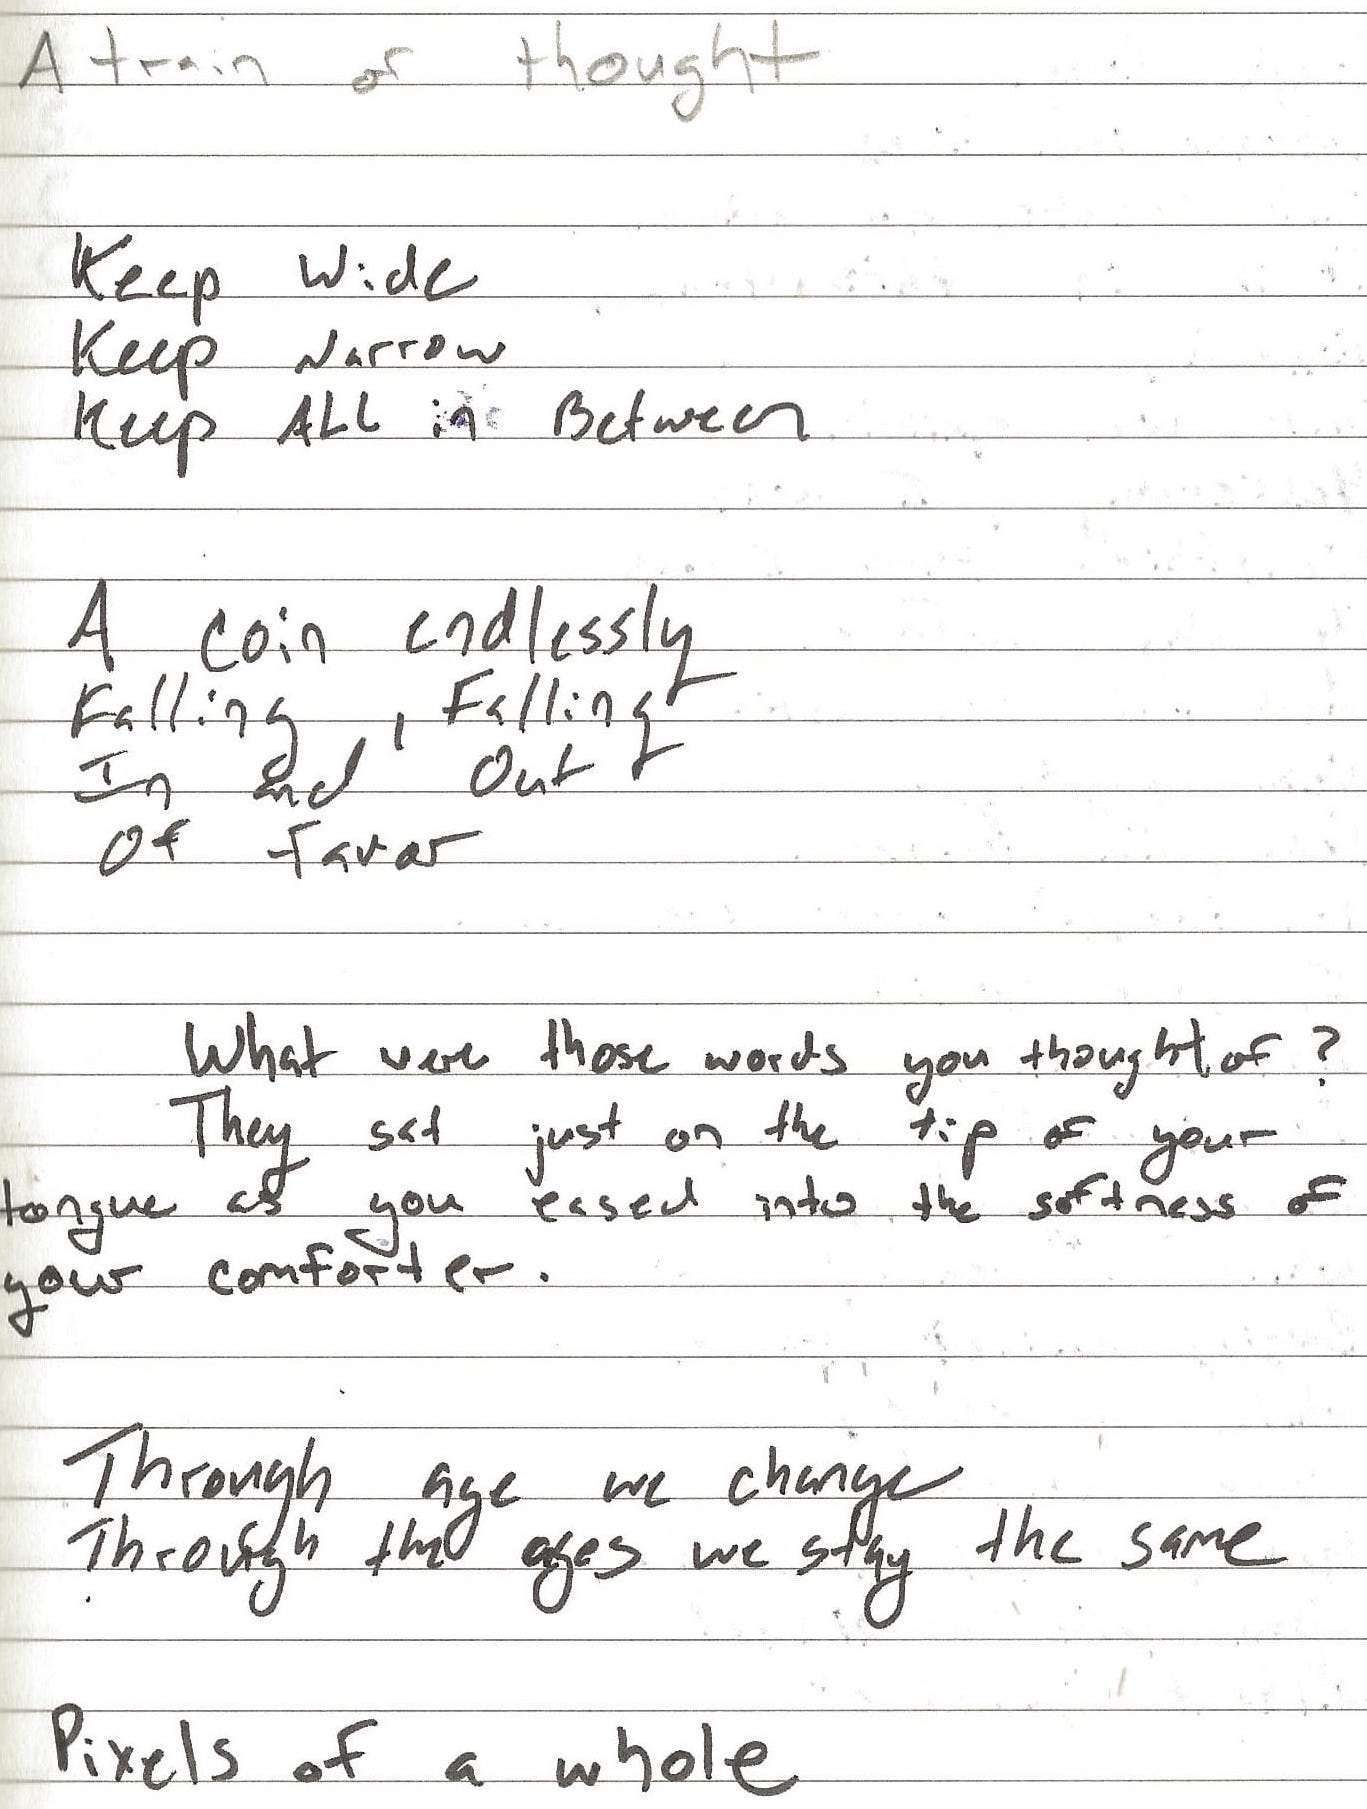 A train of thought
Keep Wide
Keep Narrow
Keep ALL in Between
A coin endlessly
Falling, Falling
In and Out
Of favor
What were those words you thought of?
They sat just on the tip of your
tongue as you eased into the softness of
your comforter.
Through age we change
Through the ages we stay the same
Pixels of a whole